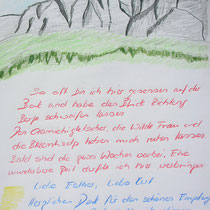 So oft bin ich hier gesessen auf der
Bank und habe den Blick Richtung
Berge schweifen lassen.
Der Gamchigletscher, die Wilde Frau und
die Blüemlisalp haben mich rufen lassen.
Bald sind die zwei Wochen vorbei. Eine
wunderbare Zeit durfte ich hier verbringen
Liebe Esther, Liebe Ruf
Herzlichen Dank für den schönen Empfang